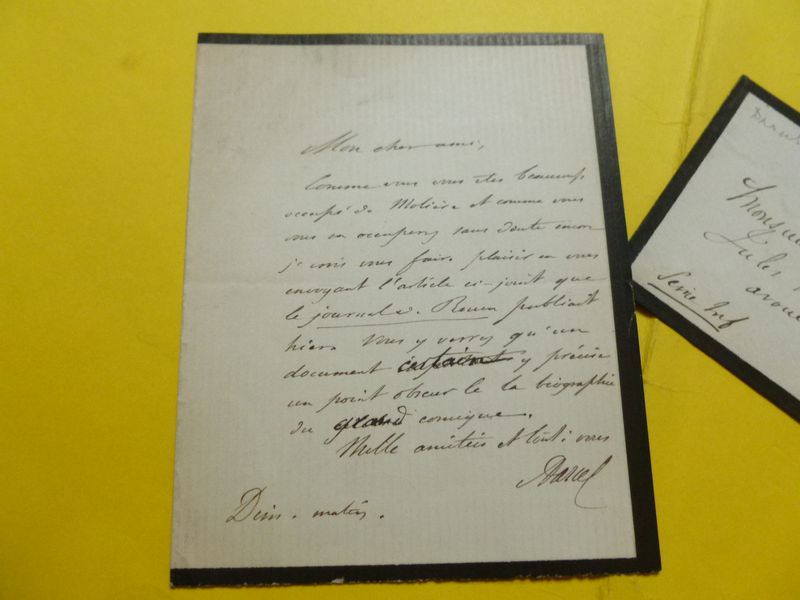 Mon cher ami,
Comme vous vous êtes beaucoup
occupé de Molière et comme vous
vous en occuperez sans doute encore
je crois vous faire plaisir en vous
envoyant l'article ci-joint que
le journal de Rouen publiait
hier. Vous y verrez qu'un
document y précise
un point obscur de la biographie
du grand comique.
Mille amitiés et tout à vous
Darcel
Dim. matin.
Monsieur
Jules
avoué
Seine Inf